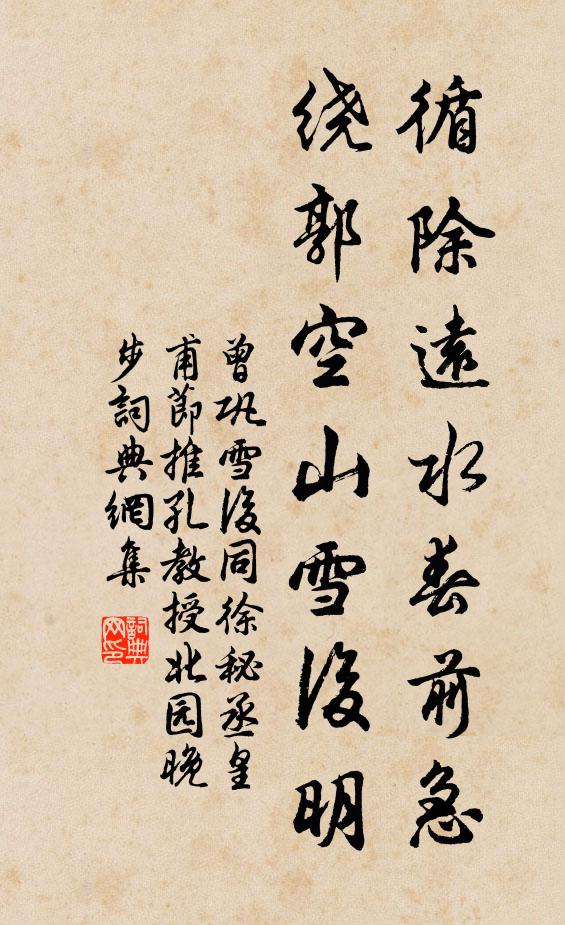 循除遠水春前急
绕郭空山雪後明
曾巩雪後同徐秘丞皇
甫節推孔教授北园晚
步詞典網集
詞典
网印